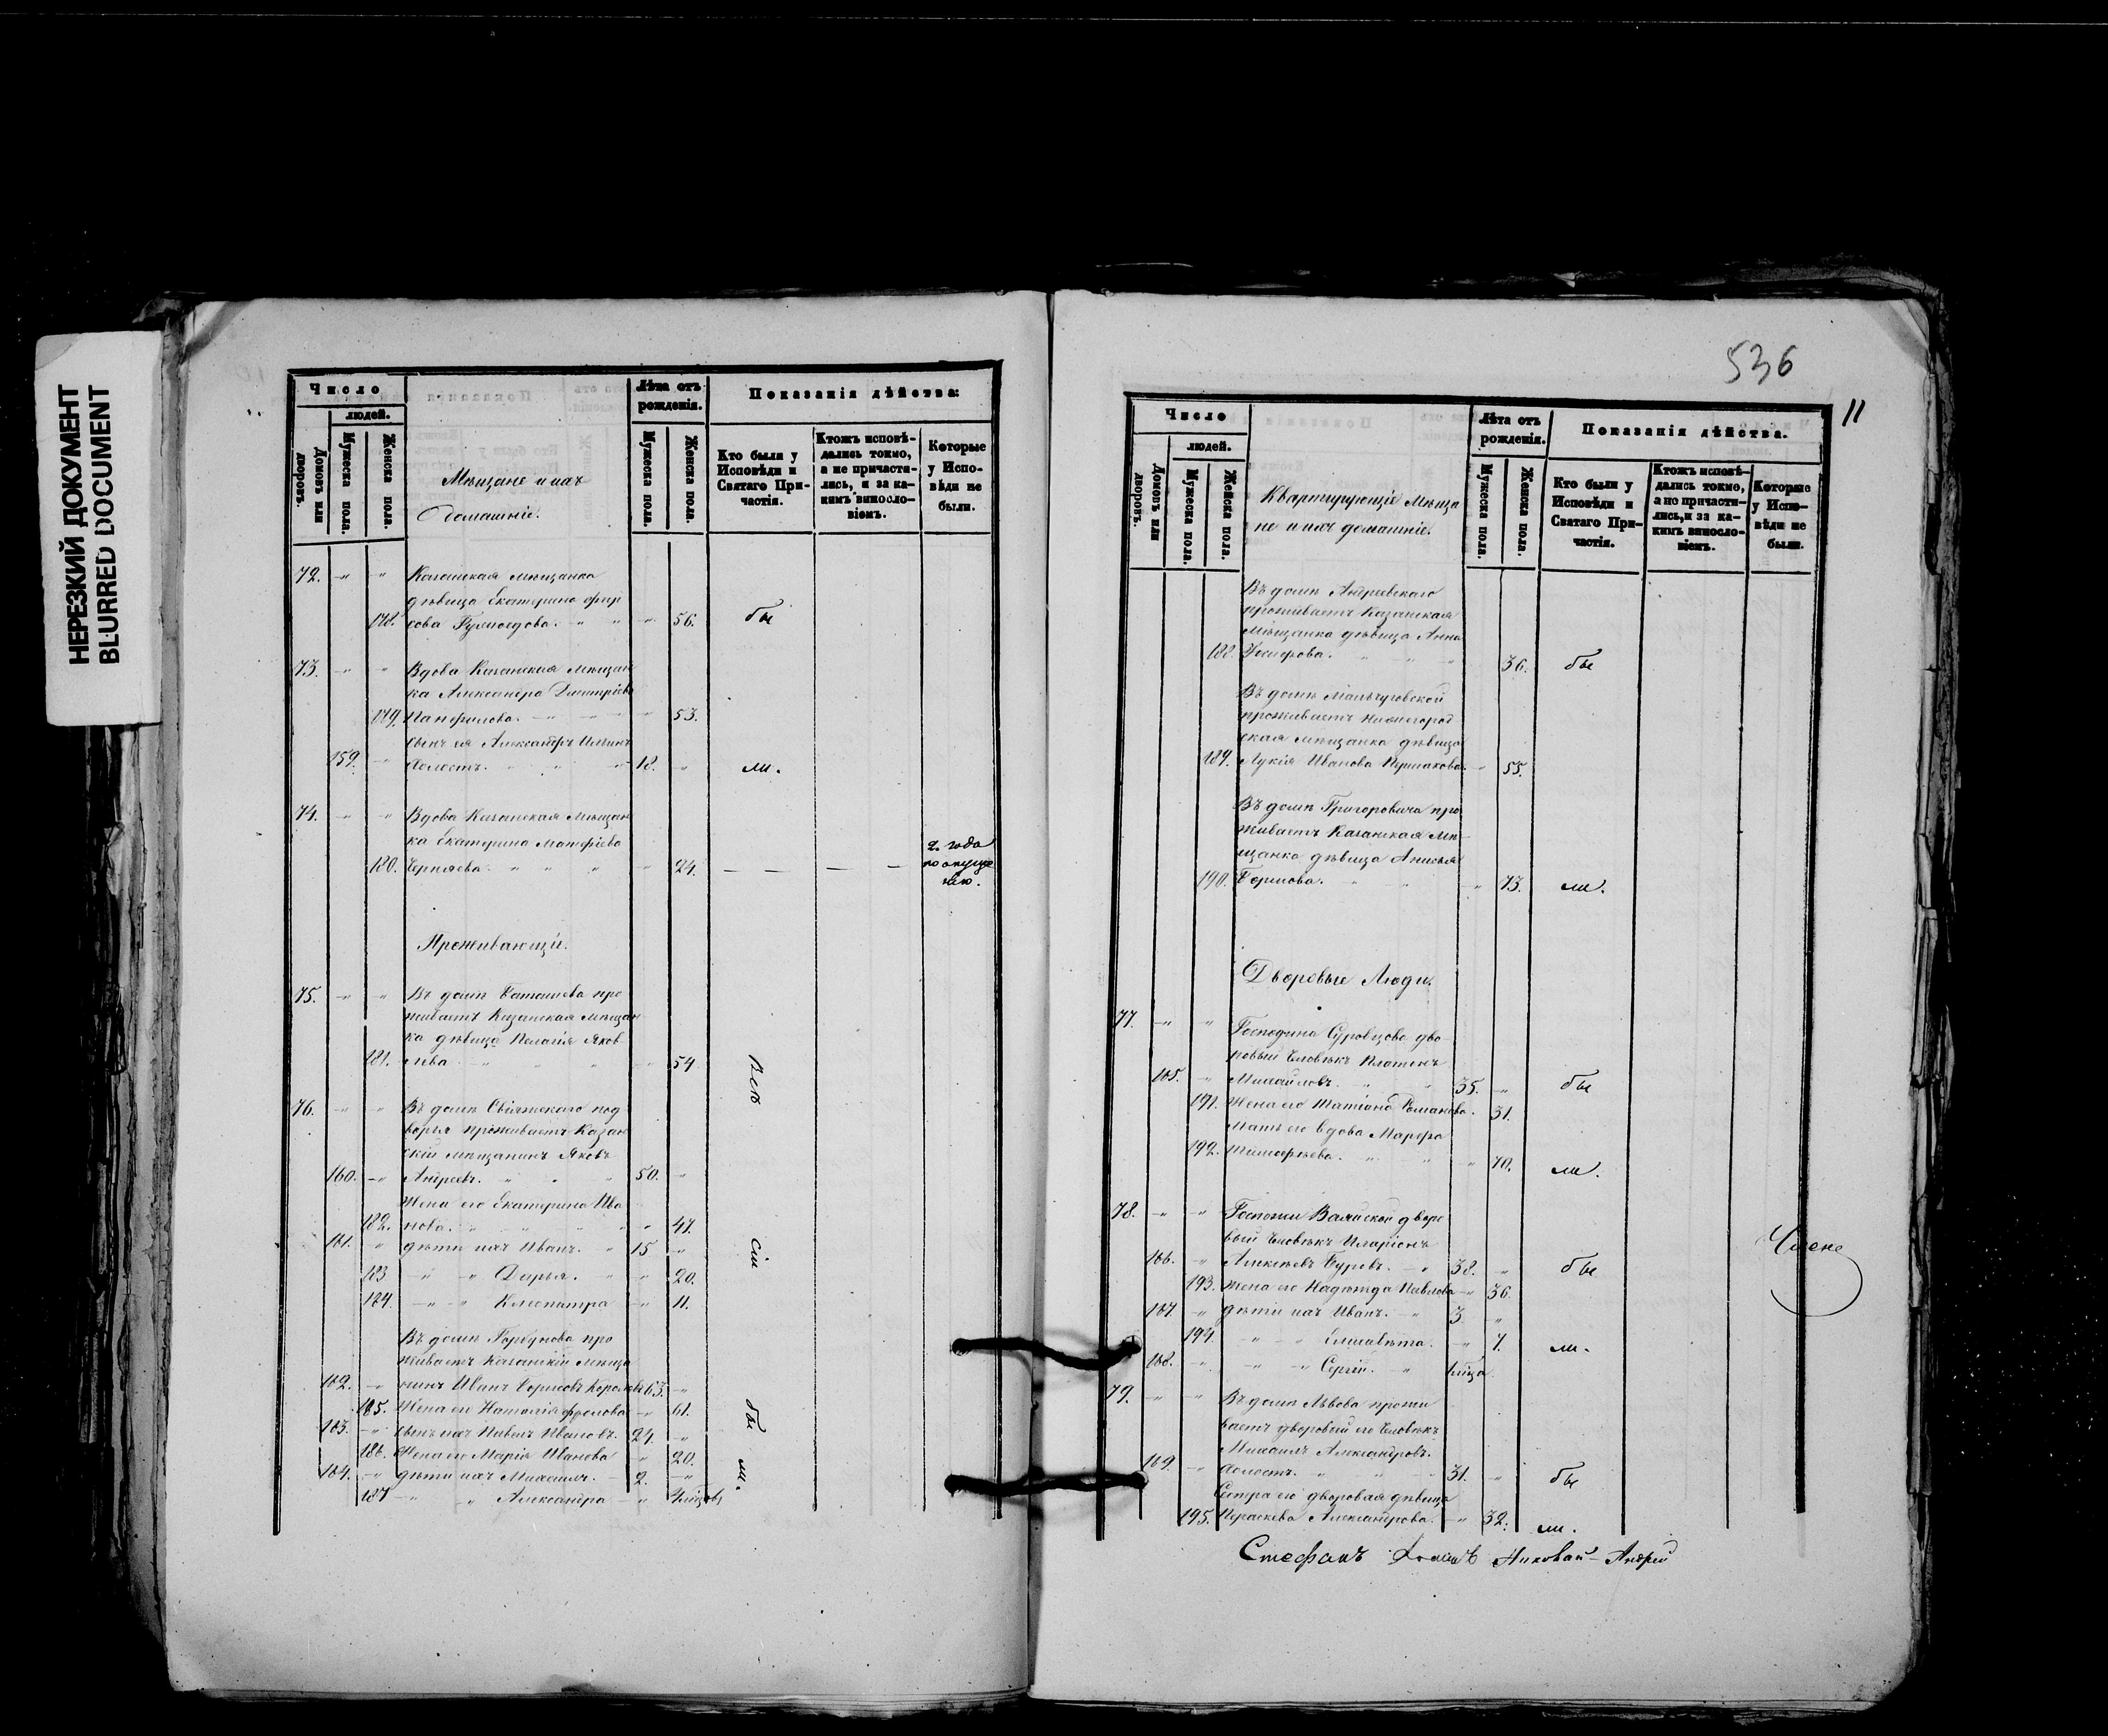 НЕРЕЗКИЙ ДОКУМЕНТ
BLURRED DOCUMENT
Число
людей.
Домовъ или дворовъ.
Мужеска пола.
Женска пола.
Мѣщане и ихъ
домашніе.
Лѣта отъ
рожденія.
Мужеска пола.
Женска пола.
Показанія дѣйства:
Кто были у
Исповѣди и
Святаго При-
частія.
Ктожъ исповѣ-
дались токмо,
а не причасти-
лись, и за ка-
кимъ винослo-
віемъ.
Которые
у Испо-
вѣди не
были.
72. -"- " Казанская мѣщанка
дѣвица Екатерина Фир
178. сова -"- 56. бы
73. -"- " Вдова Казанская мѣщан
ка Александра Дмитріева
179. Панфилова. -"- 53.
сынъ ея Александръ Ильинъ
159. -"- Холостъ. 18. " ли.
74. -"- " Вдова Казанская мѣщан
ка Екатерина Матфіева
180. Черняева. " " " 24. — — — — 2. года
по опуще
нію.
Проживающіе.
75. -"- " Въ домѣ про
живаетъ Казанская мѣщан
ка дѣвица Пелагія Яков
181. лева -"- 54
Всѣ
76. " " Въ домѣ Свіяжскаго под
ворья проживаетъ Казан
скій мѣщанинъ Яковъ
160. -"- Андреевъ. " " " 50. "
Жена его Екатерина Ива
182. нова. " " " 47.
161. " дѣти ихъ Иванъ. " 15 "
сіи
183 -"- " Дарья. " " 20.
184. -"- " Клеопатра -"- 11.
Въ домѣ Горбунова про
живаетъ Казанскій мѣща
162. -"- нинъ Иванъ Борисовъ 63. -"-
185. Жена его Наталія Фролова -"- 61.
бы
163. -"- сынъ ихъ Иванъ Ивановъ. 24. -"-
186. Жена его Марія Иванова " 20.
164. -"- дѣти ихъ Михаилъ. - 2. -"-
ли.
187 -"- " Александра -"-
536
11
Число
людей.
Домовъ или дворовъ.
Мужеска пола.
Женска пола.
Квартирующіе Мѣща
не и ихъ домашніе.
Лѣта отъ
рожденія.
Мужеска пола.
Женска пола.
Показанія дѣйства.
Кто были у
Исповѣди и
Святаго При-
частія.
Ктожъ исповѣ-
дались токмо,
а не причасти-
лись, и за ка-
кимъ винослo-
віемъ.
Которые
у Испо-
вѣди не
были.
Въ домѣ Андреевскаго
проживаетъ Казанская
Мѣщанка дѣвица Анна
188. Іосифова. " -"- " 36. бы
Въ домѣ
проживаетъ Нижегород
ская мѣщанка дѣвица
189. Лукія Иванова -"- 55.
Въ домѣ Григоровича про
живаетъ Казанская Мѣ
щанка дѣвица Анисья
190. " " " 73. ли.
Дворовые Люди.
77. -"- " Господина Суровцова дво
ровый человѣкъ Платонъ
165. -"- Михайловъ. " " 35. -"- бы
191. Жена его Татіана Романова. 31.
Мать его вдова Марфа
192. Тимофѣева. " " " 70. ли.
78. " -"- Госпожи дворо
вый человѣкъ Иларіонъ
166. -"- Алексѣевъ Буровъ. -"- 38. " бы
193. Жена его Надежда Павлова -"- 36.
167. -"- дѣти ихъ Иванъ. -"- 3 "
194. " -"- Елисавѣта. -"- 7. ли.
168. -"- -"- " Сергій. "
79. -"- -"- Въ домѣ Львова прожи
ваетъ дворовый его человѣкъ
Михаилъ Александровъ.
169. -"- Холостъ. " " " 31. " бы
Сестра его дворовая дѣвица
195. Параскева Александрова. -"- 32. ли.
Стефанъ Николай - Андрей